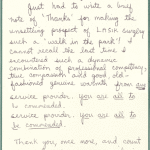 Just had to write a brief
note of "Thanks" for making the
unsettling prospect of LASIK surgery
such a "walk in the park"! I
cannot recall the last time I
encountered such a dynamic
combination of professional competency,
true compassion and good old-
fashioned genuine warmth from any
service provider, you are all to
be commended.
service provider, you are all to
be commended.
Thank you, once more, and count